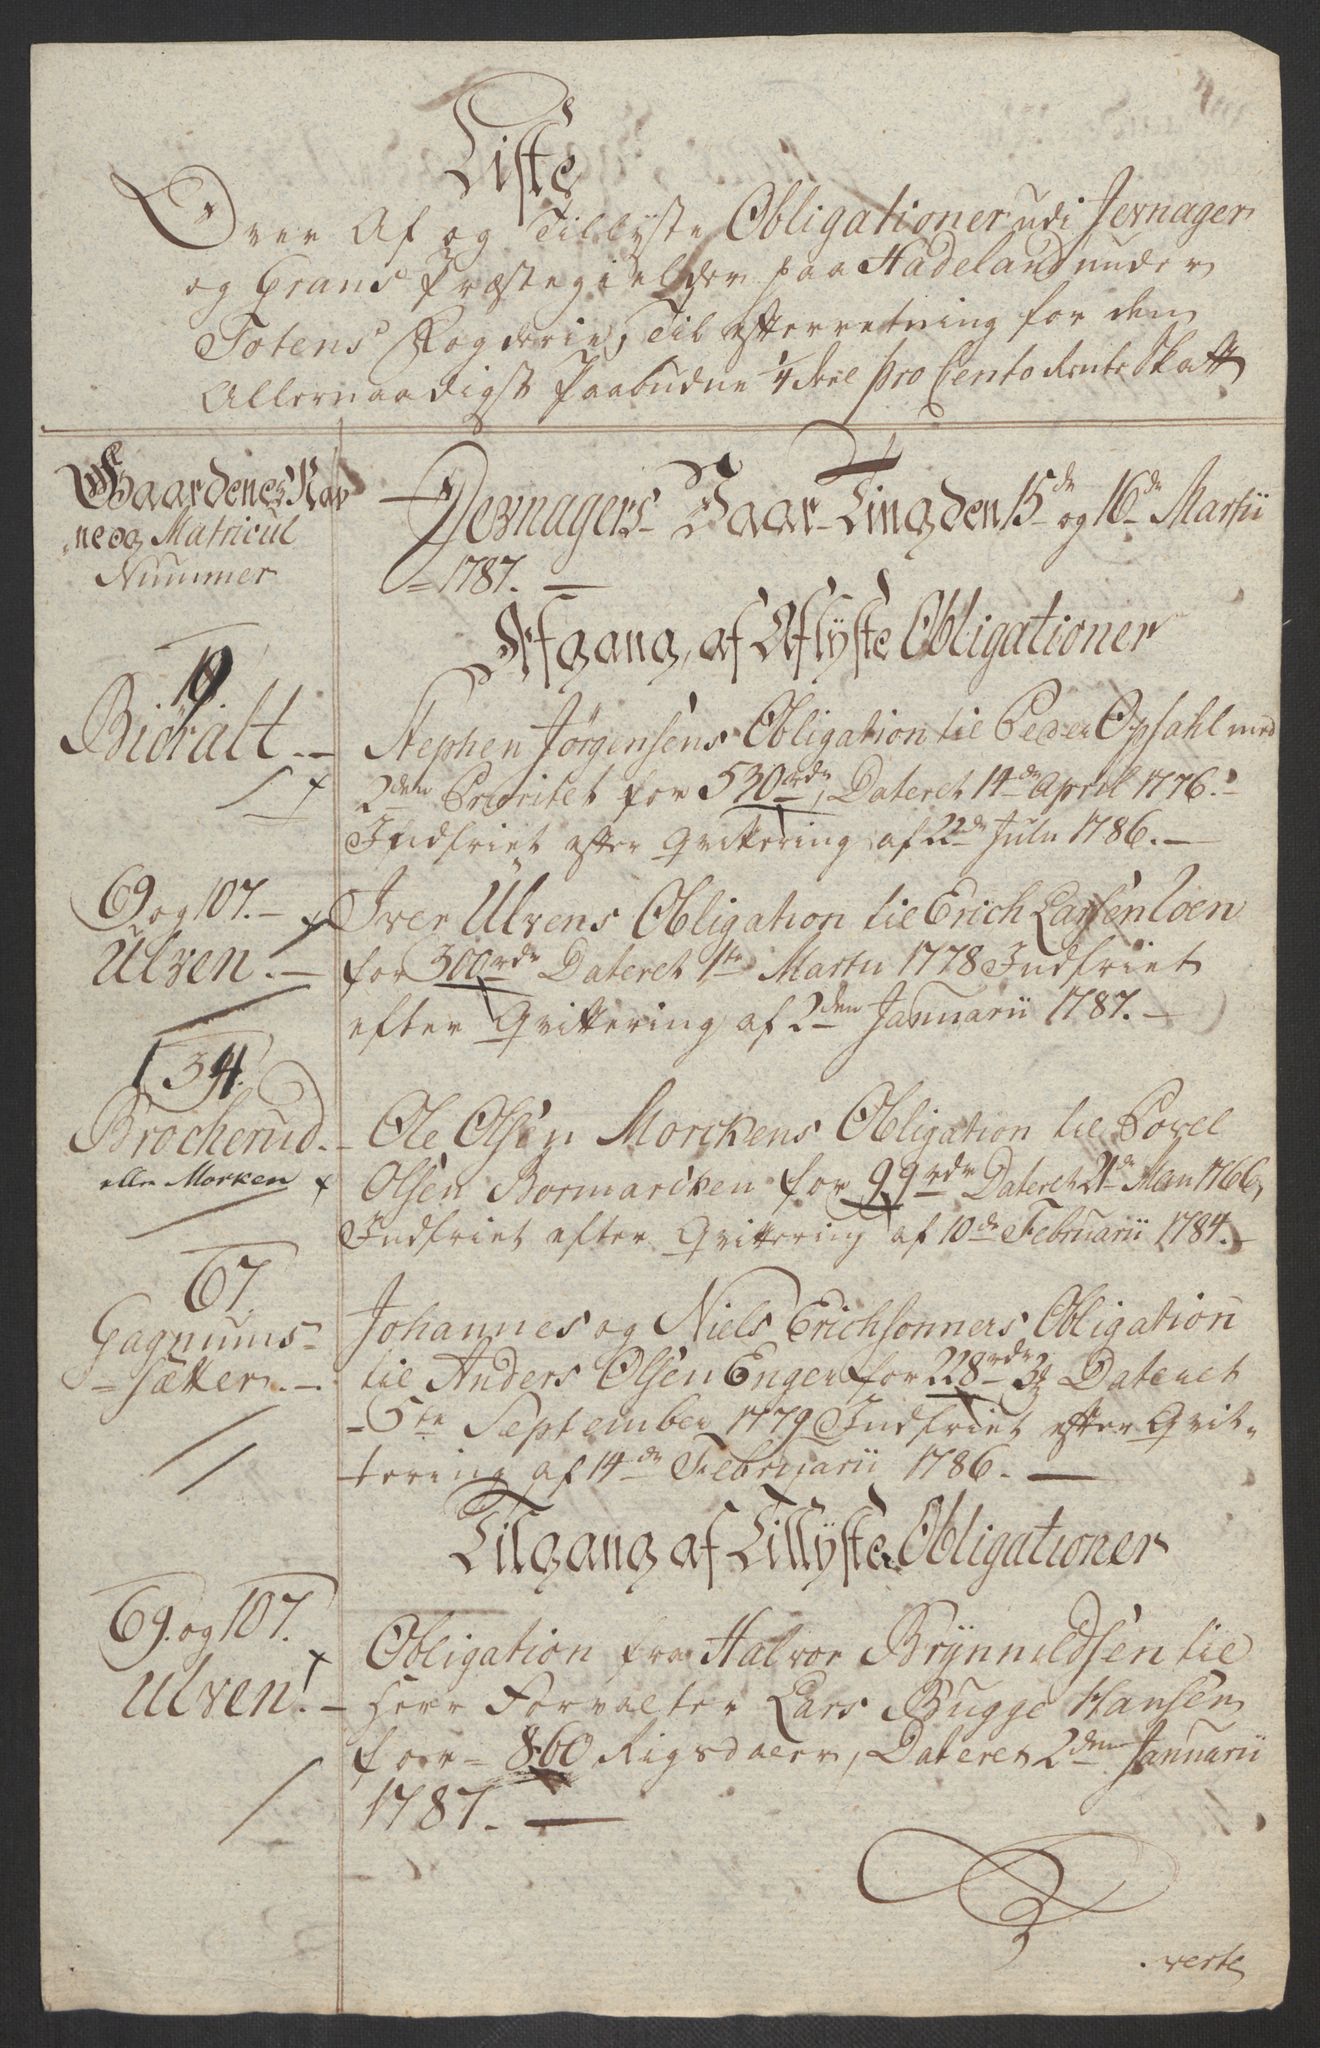 Liste
Over Af og Tillyste Obligationer udi Jevnager
og Grans Præstegielder paa Hadeland under
Totens Fogderie, Til efterretning for den
Allernaadigst Paabudne 1/4 deel pro Cento Rente Skatt
Gaardenes Nav
ne og Matricul
Nummer
Jevnagers Vaar-Ting den 15de og 16de Martii
= 1787. —
Afgang, af Aflyste Obligationer
19.
Bioralt. —
Stephen Jörgensens Obligation til Peder Opsahl med
2den Prioritet for 530rdr, Dateret 14de April 1776.
Indfriet efter Qvittering af 22de Julii 1786. —
69 og 107. —
Ulven. —
Iver Ulvens Obligation til Erich Larsen Loen
for 300rdr Dateret 1te Martii 1778 Indfriet
efter Qvittering af 2den Januarii 1787. —
34.
Brocherud. —
eller Morken
Ole Olsen Morckens Obligation til Povel
Olsen Bormarcken for 99rdr Dateret 21de Maii 1766,
Indfriet efter Qvittering af 10de Februarii 1784. —
67
Gagnums-
= sætter. —
Johannes og Niels Erichsönners Obligation
til Anders Olsen Enger for 228rdr 3 Dateret
5te September 1779 Indfriet efter Qvit-
tering af 14de Februarii 1786. —
Tilgang af Tillyste Obligationer
69. og 107.
Ulven. —
Obligation fra Halvor Brynnildsen til
Herr Forvalter Lars Bugge Hansen
for = 860 Rigsdaler, Dateret 2den Januarii
1787. —
verte